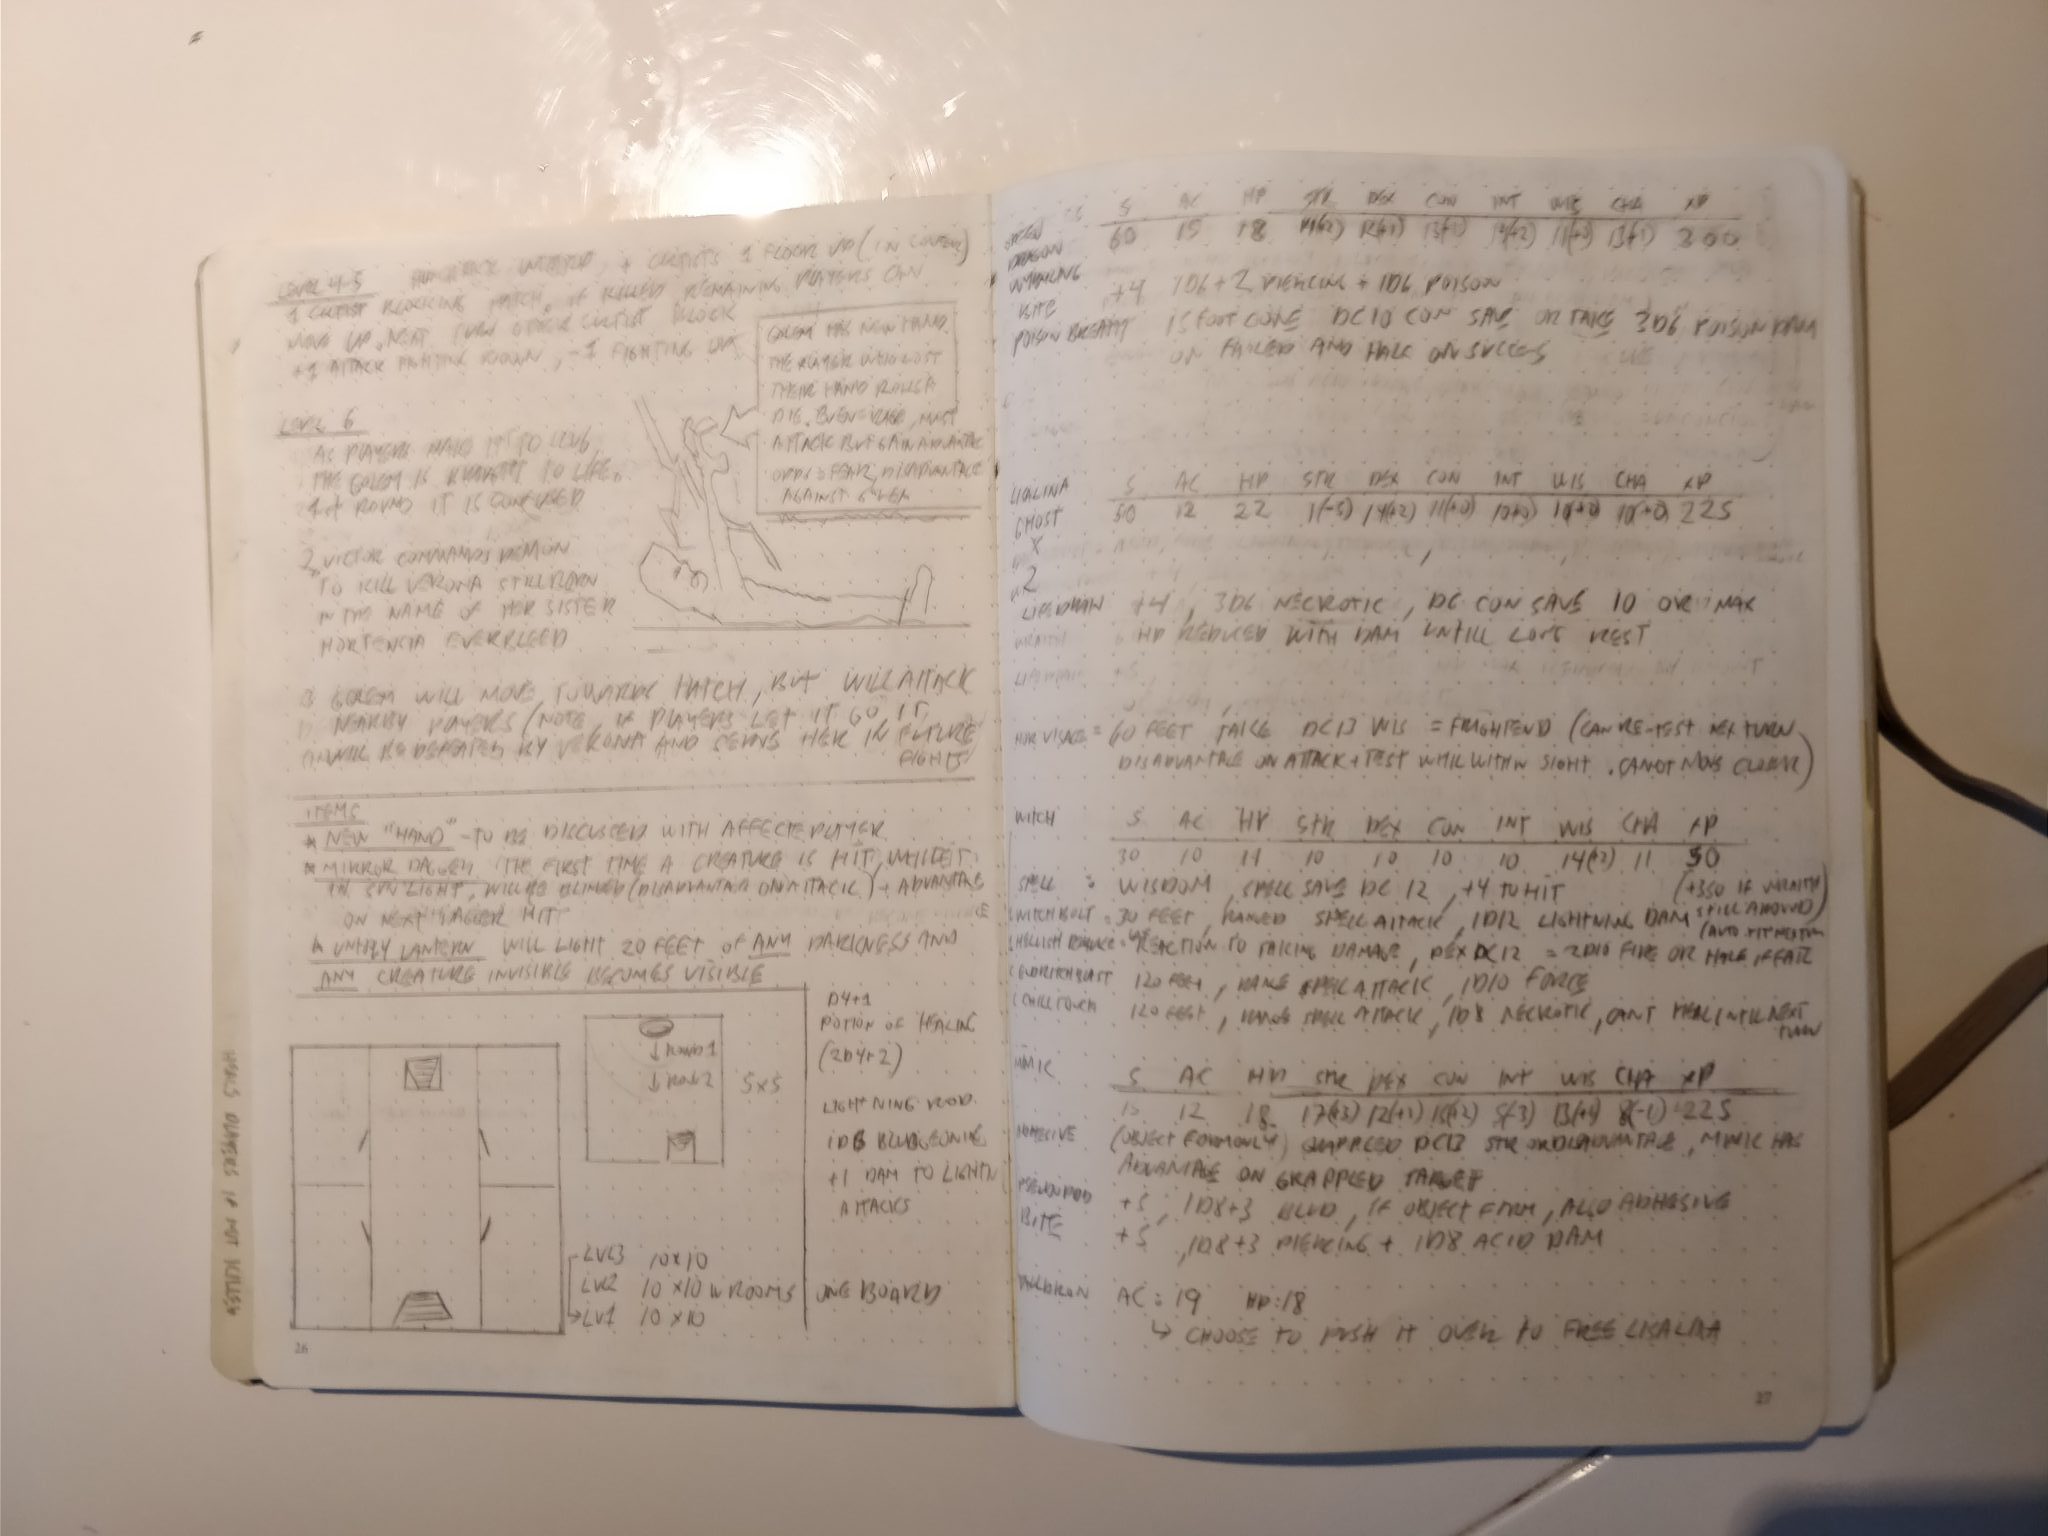 LEVEL 4-5 + CULTISTS 1 FLOOR UP (IN CENTER)
1 CULTIST BLOCKING HATCH, IF KILLED REMAINING PLAYERS CAN
MOVE UP, NEXT TURN OTHER CULTIST BLOCK
+1 ATTACK FIGHTING DOWN, -1 FIGHTING UP
GOLEM HAS NEW HAND.
THE PLAYER WHO LOST
THEIR HAND ROLLS A
D16. EVEN = RAGE, MUST
ATTACK BUT GAIN ADVANTAGE
ODDS = FEAR, DISADVANTAGE
AGAINST GOLEM
LEVEL 6
AS PLAYERS MAKE IT TO LEVEL 6
THE GOLEM IS BROUGHT TO LIFE.
1st ROUND IT IS CONFUSED
2. VICTOR COMMANDS DEMON
TO KILL VERONA STILLBORN
IN THE NAME OF HER SISTER
HORTENCIA EVERBLEED
3 GOLEM WILL MOVE TOWARDS HATCH, BUT WILL ATTACK
NEARBY PLAYERS (NOTE, IF PLAYERS LET IT GO, IT
WILL BE DEFEATED BY VERONA AND SERVE HER IN FUTURE
FIGHTS)
ITEMS
* NEW "HAND" - TO BE DISCUSSED WITH AFFECTE PLAYER
* MIRROR DAGGER THE FIRST TIME A CREATURE IS HIT, WHILE IT
IN SUN LIGHT, WILL BE BLINED (DISADVANTAGE ON ATTACK) + ADVANTAGE
ON NEXT DAGGER HIT
* UNHOLY LANTERN WILL LIGHT 20 FEET OF ANY DARKNESS AND
ANY CREATURE INVISIBLE BECOMES VISIBLE
↓ ROUND 1
↓ ROUND 2
5x5
D4+1
POTION OF HEALING
(2D4+2)
LIGHTNING ROD
1D6 BLUDGEONING
+1 DAM TO LIGHTN
ATTACKS
LVL3 10x10
LVL2 10x10 W ROOMS
LV1 10x10
ONE BOARD
26
S AC HP STR DEX CON INT WIS CHA XP
GREEN DRAGON WYRMLING 60 15 18 14(+2) 12(+1) 13(+1) 14(+2) 11(+0) 13(+1) 300
BITE +4 1D6+2 PIERCING + 1D6 POISON
POISON BREATH 15 FOOT CONE DC10 CON SAVE OR TAKE 3D6 POISON DAM
ON FAILED AND HALF ON SUCCES
S AC HP STR DEX CON INT WIS CHA XP
GHOST 50 12 22 1(-5) 14(+2) 11(+0) 10(+0) 10(+0) 10(+0) 225
x
2
LIFEDRAIN +4, 3D6 NECROTIC, DC CON SAVE 10 OR MAX
HP REDUCED WITH DAM UNTILL LONG REST
HOR VISAGE = 60 FEET TAKE DC13 WIS = FRIGHTEND (CAN RE-TEST NEX TURN
DISADVANTAGE ON ATTACK + TEST WHILE WITHIN SIGHT. CANOT MOVE CLOSER)
WITCH S AC HP STR DEX CON INT WIS CHA XP
30 10 14 10 10 10 10 14(+2) 11 50
SPELL = WISDOM, SPELL SAVE DC 12, +4 TO HIT (+350 IF WRAITH
STILL AROUND)
WITCHBOLT = 30 FEET, RANGED SPELL ATTACK, 1D12 LIGHTNING DAM
REACTION TO TAKING DAMAGE, DEX DC12 = 2D10 FIRE OR HALF IF FAIL
120 FEET, RANGE SPELL ATTACK, 1D10 FORCE
CHILL TOUCH 120 FEET, RANGE SPELL ATTACK, 1D8 NECROTIC, CANT HEAL INTIL NEXT
TURN
MIMIC S AC HP STR DEX CON INT WIS CHA XP
15 12 18 17(+3) 12(+1) 15(+2) 5(-3) 13(+1) 8(-1) 225
ADHESIVE (OBJECT FORM ONLY) GRAPPLED DC13 STR OR DISADVANTAGE, MIMIC HAS
ADVANTAGE ON GRAPPLED TARGET
PSEUDOPOD +5, 1D8+3 BLUD, IF OBJECT FORM, ALSO ADHESIVE
BITE +5, 1D8+3 PIERCING + 1D8 ACID DAM
CAULDRON AC: 19 HP: 18
↳ CHOOSE TO PUSH IT OVER TO FREE LIGALINA
27